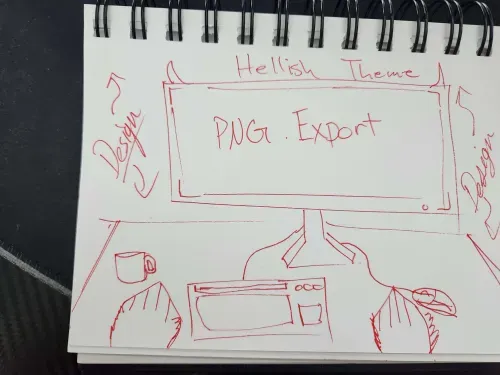 Hellish Theme
Design
PNG. Export
Design